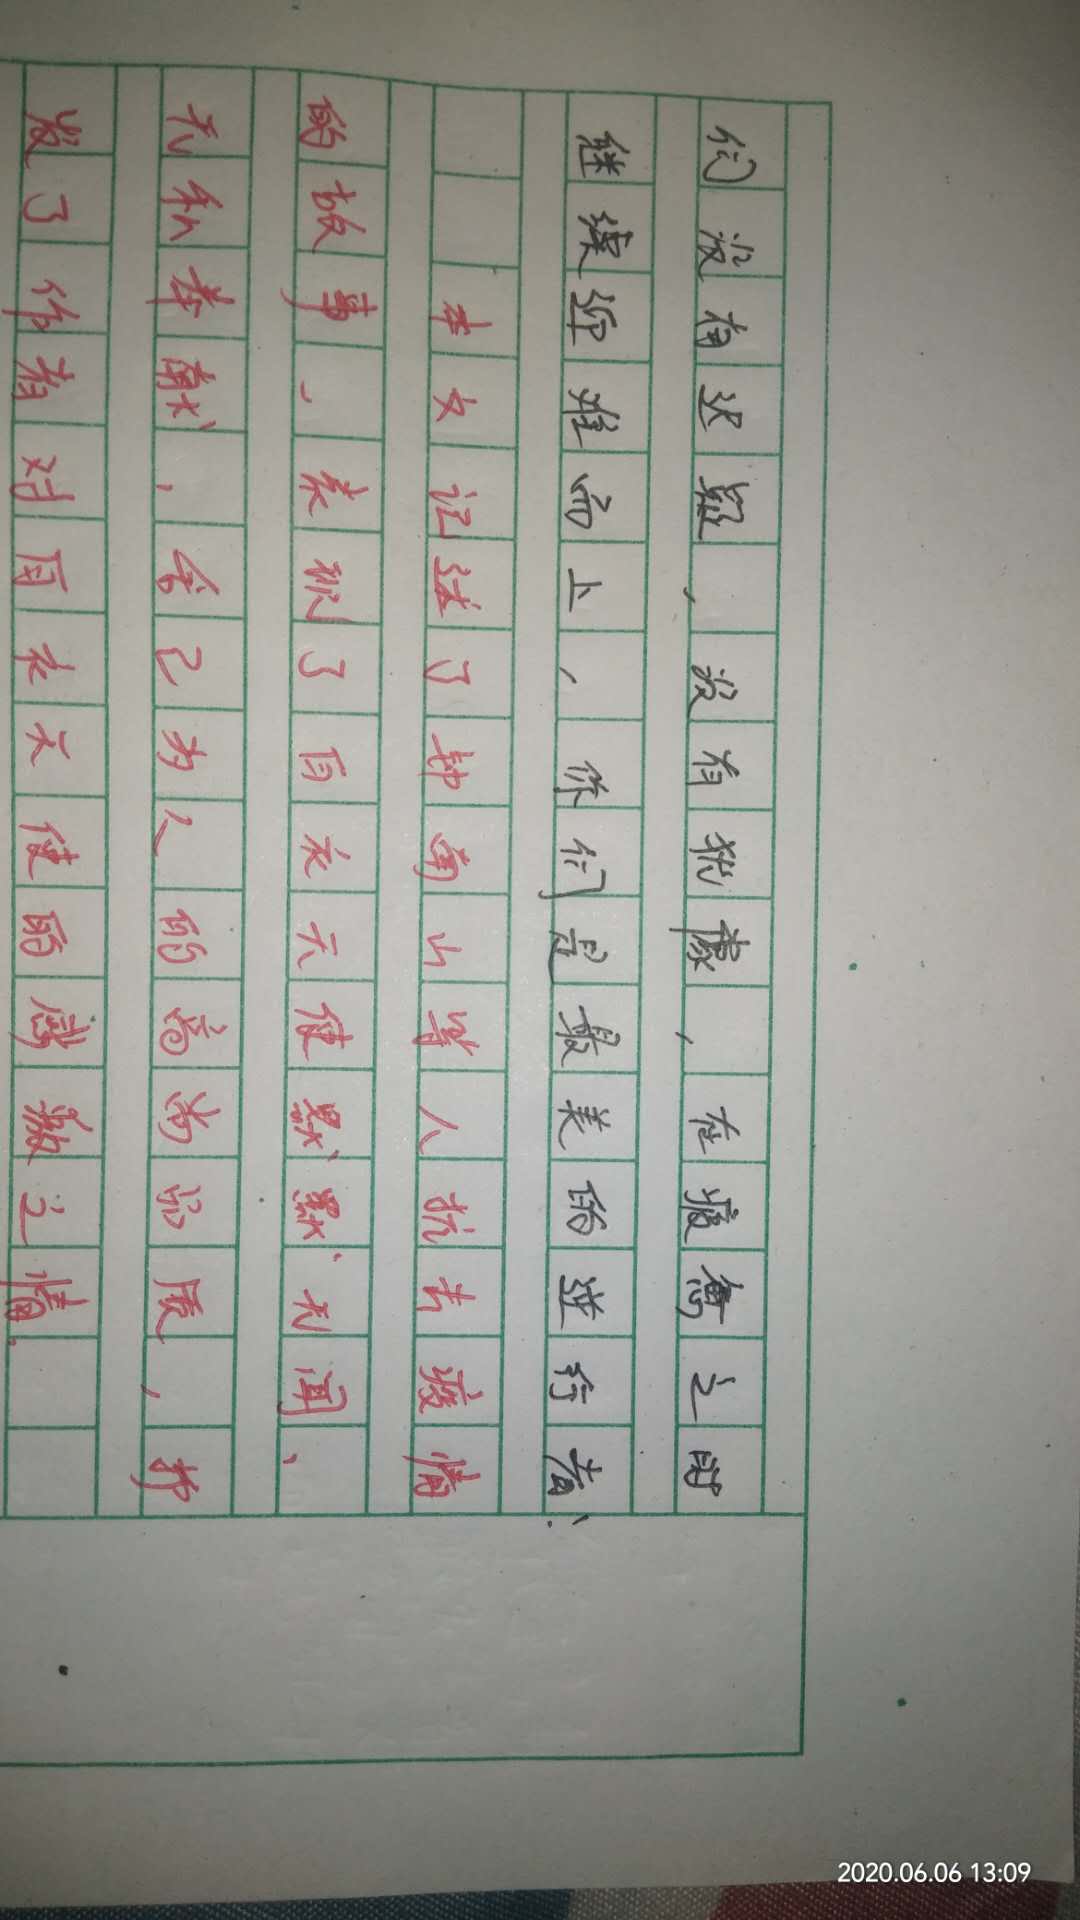 们没有迟疑，没有犹豫，在疲惫之时
继续迎难而上，你们是最美的逆行者。
本文记述了钟南山等人抗击疫情
的故事，表现了白衣天使默默无闻、
无私奉献，舍己为人的高尚品质，抒
发了作者对白衣天使的感激之情.
2020.06.06 13:09